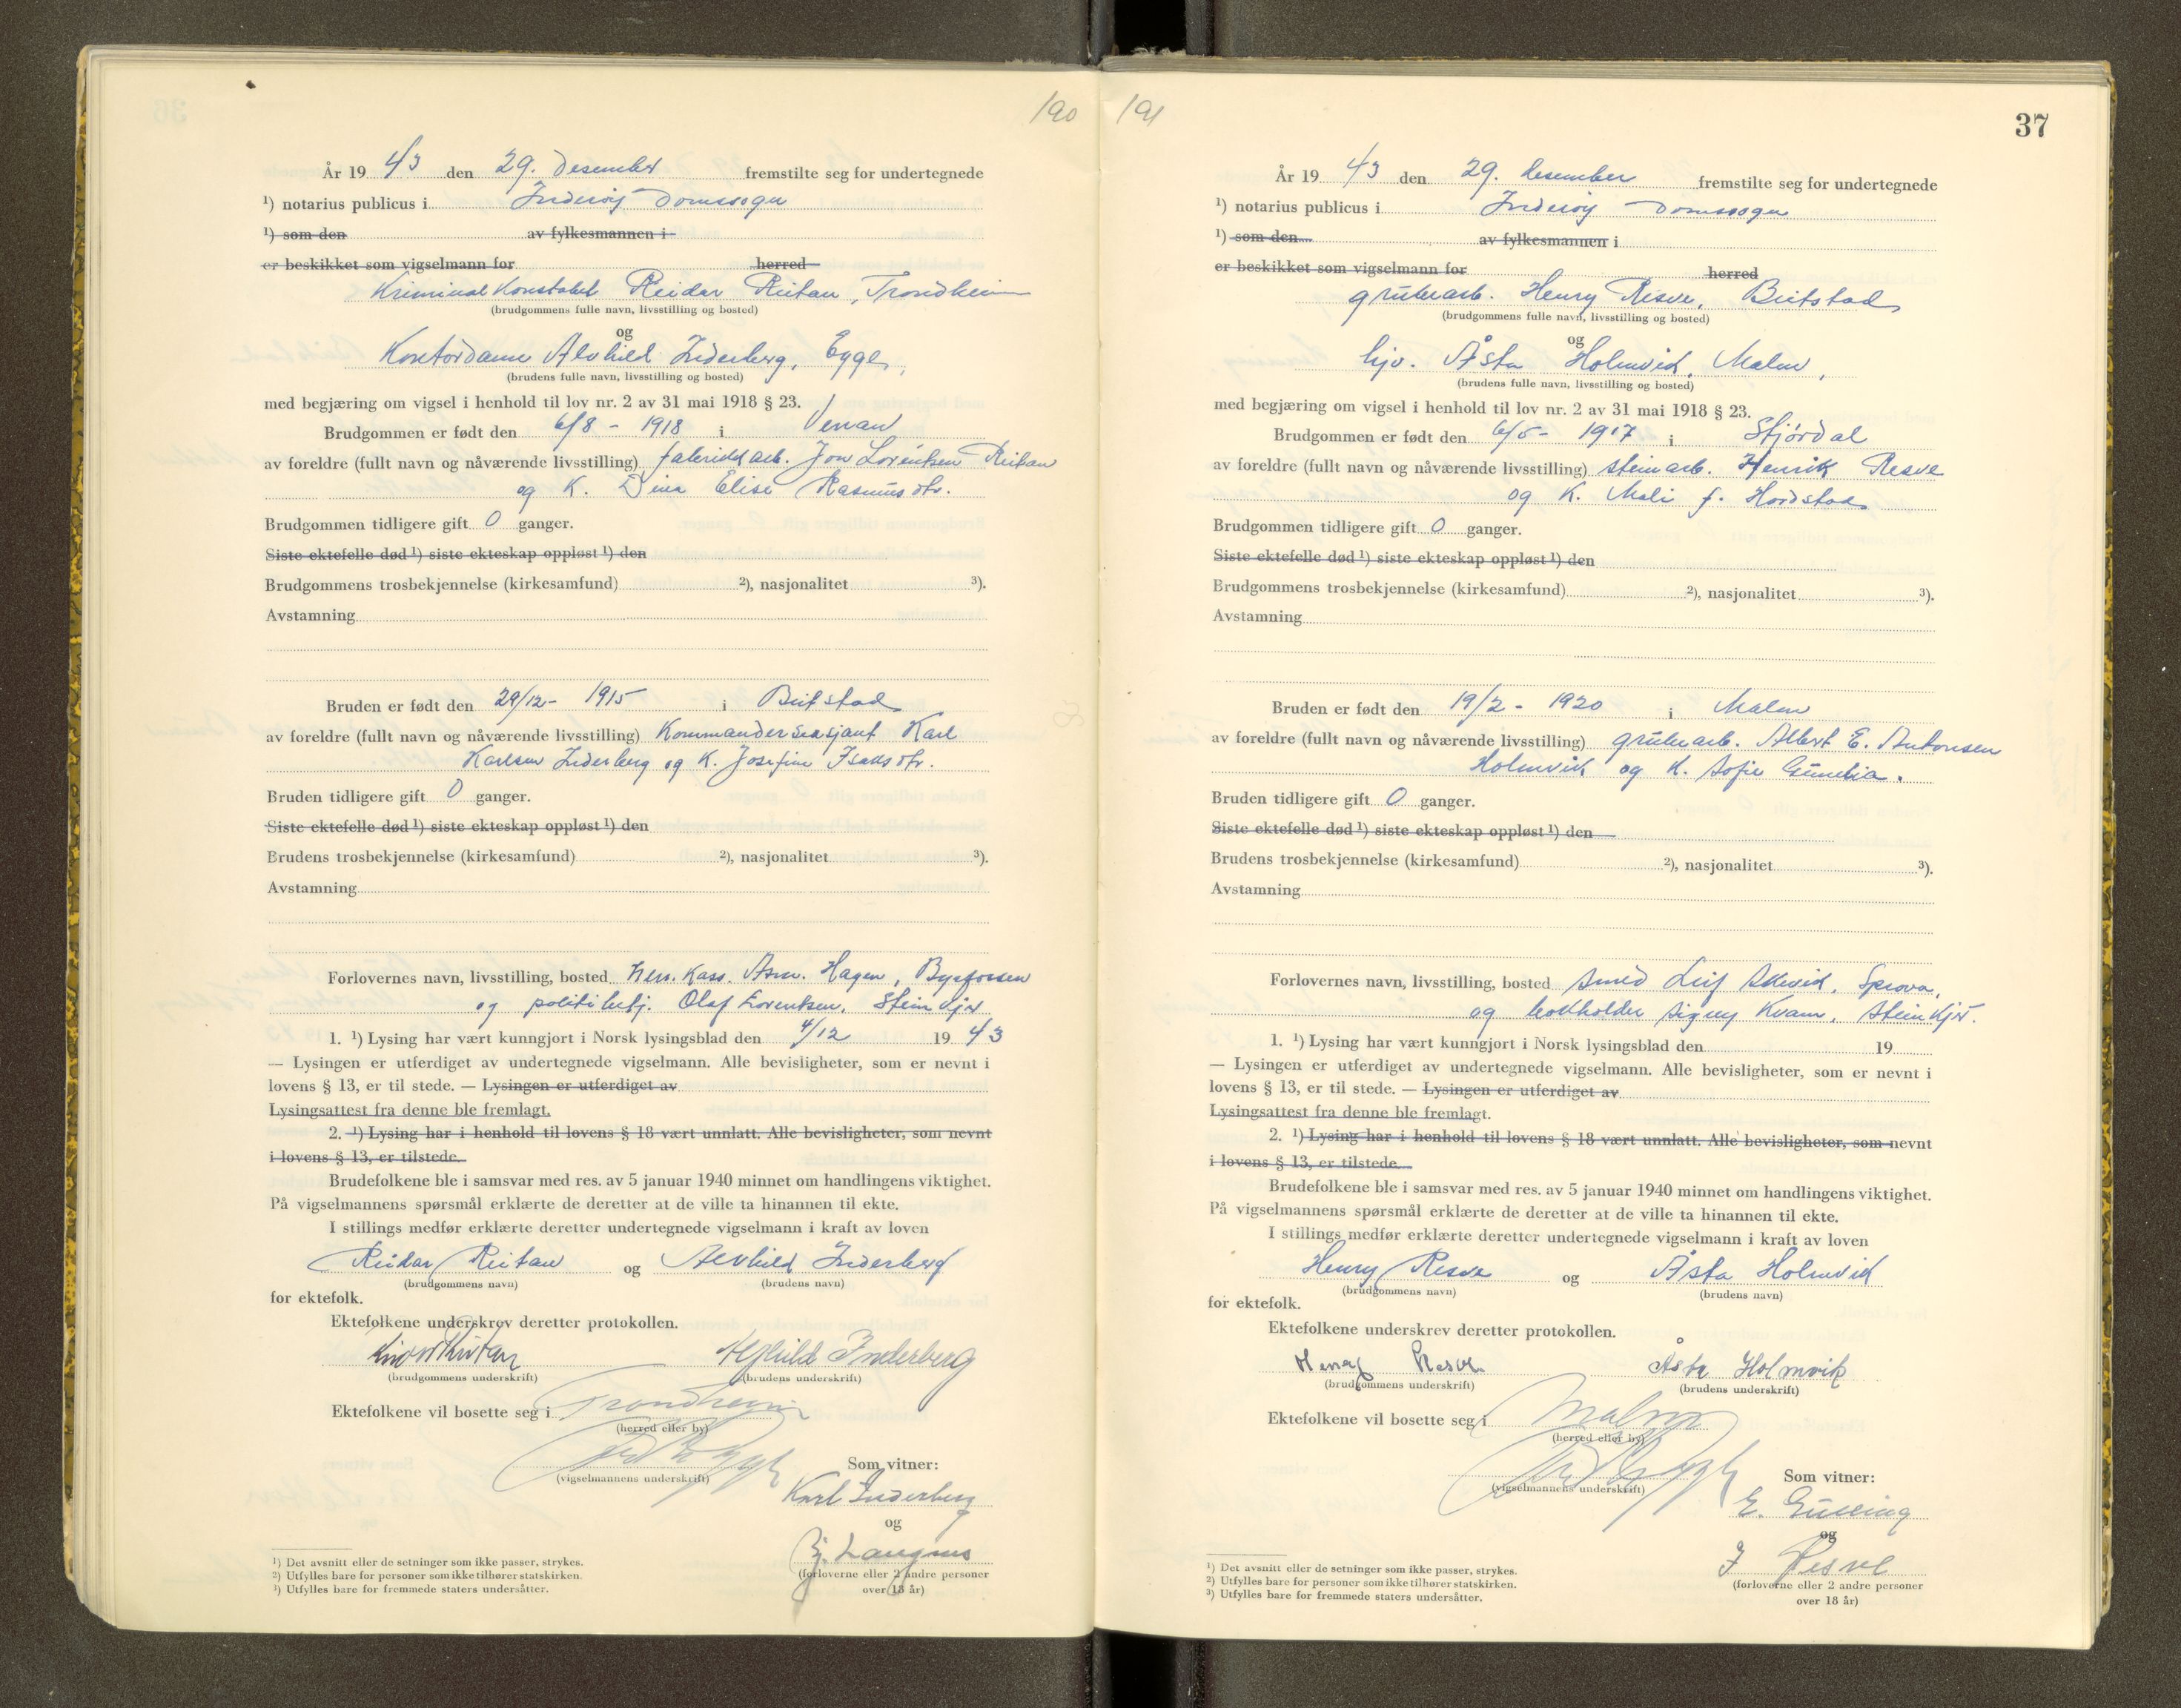 190
År 19 43 den 29. Desember fremstilte seg for undertegnede
¹) notarius publicus i Inderøy Domssogn
¹) som den av fylkesmannen i
er beskikket som vigselmann for herred
Kriminalkonstabel Reidar Reitan, Trondheim
(brudgommens fulle navn, livsstilling og bosted)
og
Kontordame Alvhild Inderberg, Egge,
(brudens fulle navn, livsstilling og bosted)
med begjæring om vigsel i henhold til lov nr. 2 av 31 mai 1918 § 23.
Brudgommen er født den 6/8 - 1918 i Verran
av foreldre (fullt navn og nåværende livsstilling) fabrikkarb. Jon Lorentsen Reitan
og K. Dina Elise Rasmusdtr.
Brudgommen tidligere gift 0 ganger.
Siste ektefelle død ¹) siste ekteskap oppløst ¹) den
Brudgommens trosbekjennelse (kirkesamfund) ²), nasjonalitet ³).
Avstamning
Bruden er født den 29/12 - 1915 i Beitstad
av foreldre (fullt navn og nåværende livsstilling) Kommandersersjant Karl
Karlsen Inderberg og K. Josefine Isaksdtr.
Bruden tidligere gift 0 ganger.
Siste ektefelle død ¹) siste ekteskap oppløst ¹) den
Brudens trosbekjennelse (kirkesamfund) ²), nasjonalitet ³).
Avstamning
Forlovernes navn, livsstilling, bosted herr. kass. Asm. Hagen, Byafossen
og politibetj. Olaf Lorentsen, Steinkjer
1. ¹) Lysing har vært kunngjort i Norsk lysingsblad den 4/12 19 43
— Lysingen er utferdiget av undertegnede vigselmann. Alle bevisligheter, som er nevnt i
lovens § 13, er til stede. — Lysingen er utferdiget av
Lysingsattest fra denne ble fremlagt.
2. ¹) Lysing har i henhold til lovens § 18 vært unnlatt. Alle bevisligheter, som nevnt
i lovens § 13, er tilstede.
Brudefolkene ble i samsvar med res. av 5 januar 1940 minnet om handlingens viktighet.
På vigselmannens spørsmål erklærte de deretter at de ville ta hinannen til ekte.
I stillings medfør erklærte deretter undertegnede vigselmann i kraft av loven
Reidar Reitan og Alvhild Inderberg
(brudgommens navn) (brudens navn)
for ektefolk.
Ektefolkene underskrev deretter protokollen.
Reidar Reitan Alfhild Inderberg
(brudgommens underskrift) (brudens underskrift)
Ektefolkene vil bosette seg i Trondheim
(herred eller by)
(vigselmannens underskrift)
Som vitner:
Karl Inderberg
og
Bj. Langnes
(forloverne eller 2 andre personer
over 18 år)
¹) Det avsnitt eller de setninger som ikke passer, strykes.
²) Utfylles bare for personer som ikke tilhører statskirken.
³) Utfylles bare for fremmede staters undersåtter.
191
37
År 19 43 den 29. desember fremstilte seg for undertegnede
¹) notarius publicus i Inderøy Domssogn
¹) som den av fylkesmannen i
er beskikket som vigselmann for herred
grubearb. Henry Resve, Beitstad
(brudgommens fulle navn, livsstilling og bosted)
og
hjv. Åsta Holmvik, Malm,
(brudens fulle navn, livsstilling og bosted)
med begjæring om vigsel i henhold til lov nr. 2 av 31 mai 1918 § 23.
Brudgommen er født den 6/5 - 1917 i Stjørdal
av foreldre (fullt navn og nåværende livsstilling) steinarb. Henrik Resve
og K. Mali f. Hordstad
Brudgommen tidligere gift 0 ganger.
Siste ektefelle død ¹) siste ekteskap oppløst ¹) den
Brudgommens trosbekjennelse (kirkesamfund) ²), nasjonalitet ³).
Avstamning
Bruden er født den 19/2 - 1920 i Malm
av foreldre (fullt navn og nåværende livsstilling) grubearb. Albert E. Antonsen
Holmvik og K. Sofie Gunelia.
Bruden tidligere gift 0 ganger.
Siste ektefelle død ¹) siste ekteskap oppløst ¹) den
Brudens trosbekjennelse (kirkesamfund) ²), nasjonalitet ³).
Avstamning
Forlovernes navn, livsstilling, bosted smed Leif Sprova,
og bokholder Signy Kvam, Steinkjer.
1. ¹) Lysing har vært kunngjort i Norsk lysingsblad den 19
— Lysingen er utferdiget av undertegnede vigselmann. Alle bevisligheter, som er nevnt i
lovens § 13, er til stede. — Lysingen er utferdiget av
Lysingsattest fra denne ble fremlagt.
2. ¹) Lysing har i henhold til lovens § 18 vært unnlatt. Alle bevisligheter, som nevnt
i lovens § 13, er tilstede.
Brudefolkene ble i samsvar med res. av 5 januar 1940 minnet om handlingens viktighet.
På vigselmannens spørsmål erklærte de deretter at de ville ta hinannen til ekte.
I stillings medfør erklærte deretter undertegnede vigselmann i kraft av loven
Henry Resve og Åsta Holmvik
(brudgommens navn) (brudens navn)
for ektefolk.
Ektefolkene underskrev deretter protokollen.
Henry Resve Åsta Holmvik
(brudgommens underskrift) (brudens underskrift)
Ektefolkene vil bosette seg i Malm
(herred eller by)
(vigselmannens underskrift)
Som vitner:
E. Gulling
og
J Resve
(forloverne eller 2 andre personer
over 18 år)
¹) Det avsnitt eller de setninger som ikke passer, strykes.
²) Utfylles bare for personer som ikke tilhører statskirken.
³) Utfylles bare for fremmede staters undersåtter.